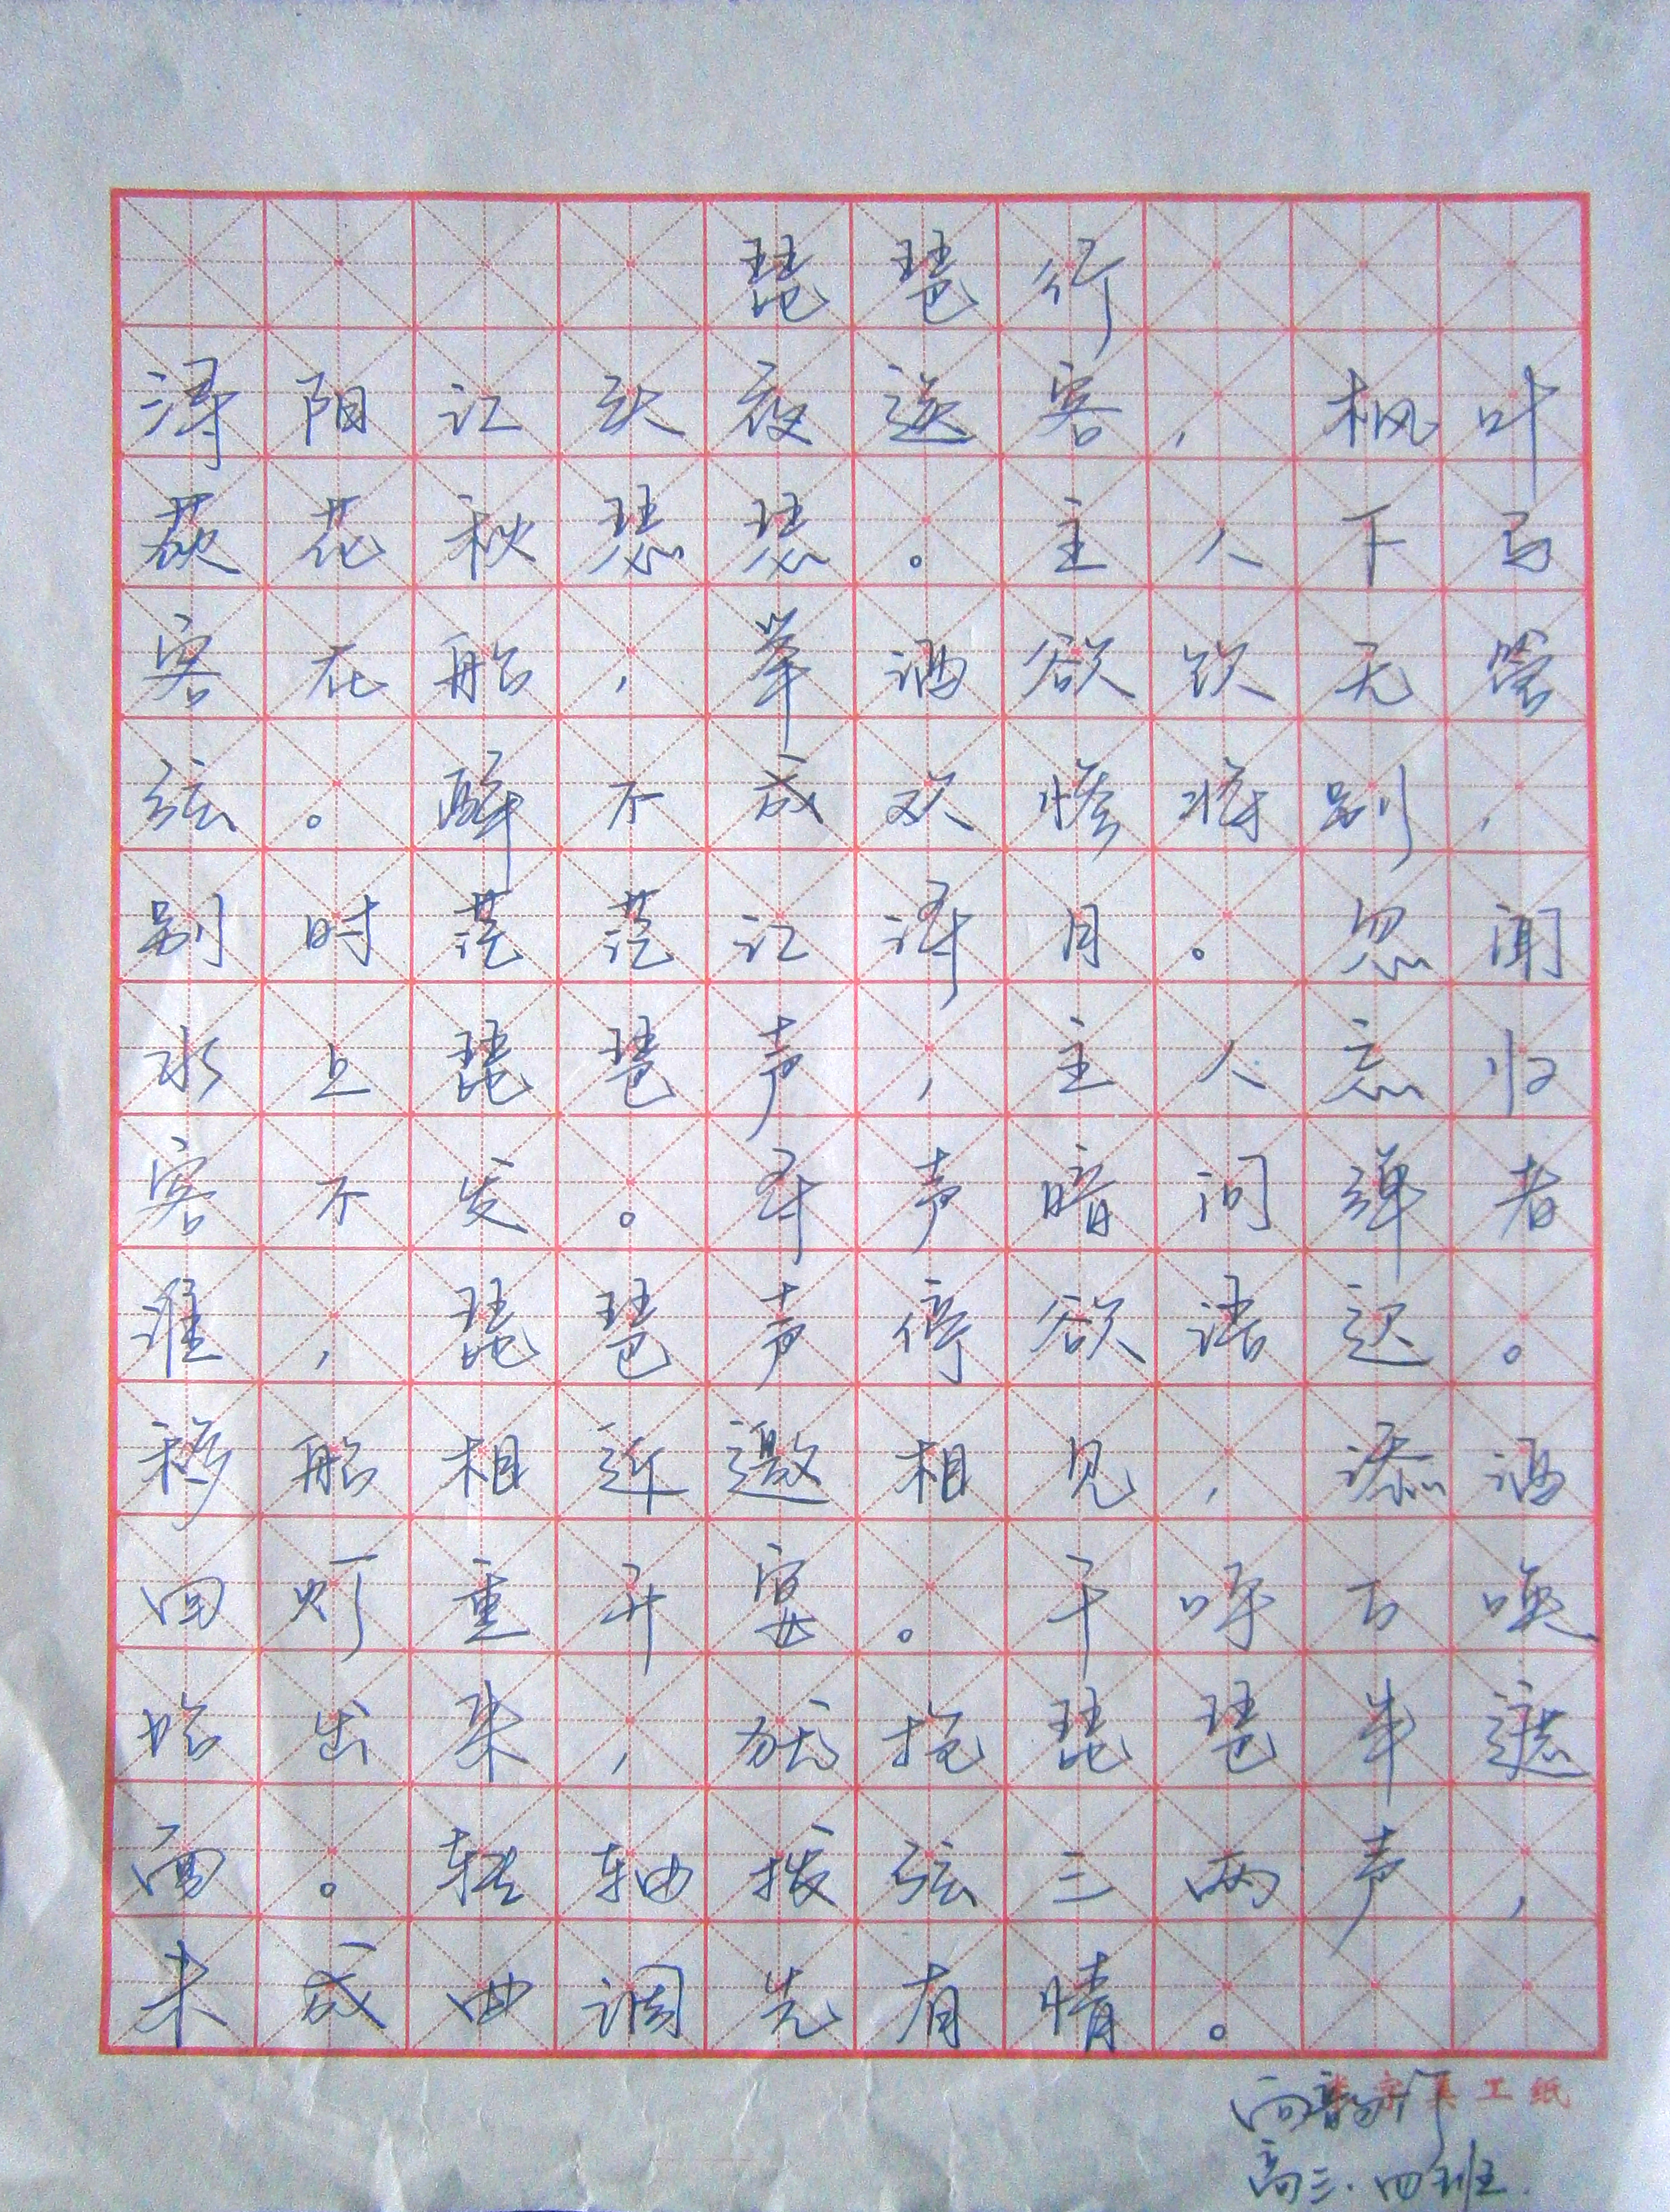 琵琶行
浔阳江头夜送客，枫叶
荻花秋瑟瑟。主人下马
客在船，举酒欲饮无管
弦。醉不成欢惨将别，
别时茫茫江浔月。忽闻
水上琵琶声，主人忘归
客不发。寻声暗问弹者
谁，琵琶声停欲语迟。
移船相近邀相见，添酒
回灯重开宴。千呼万唤
始出来，犹抱琵琶半遮
面。转轴拨弦三两声，
未成曲调先有情。
工纸
高三.四班.